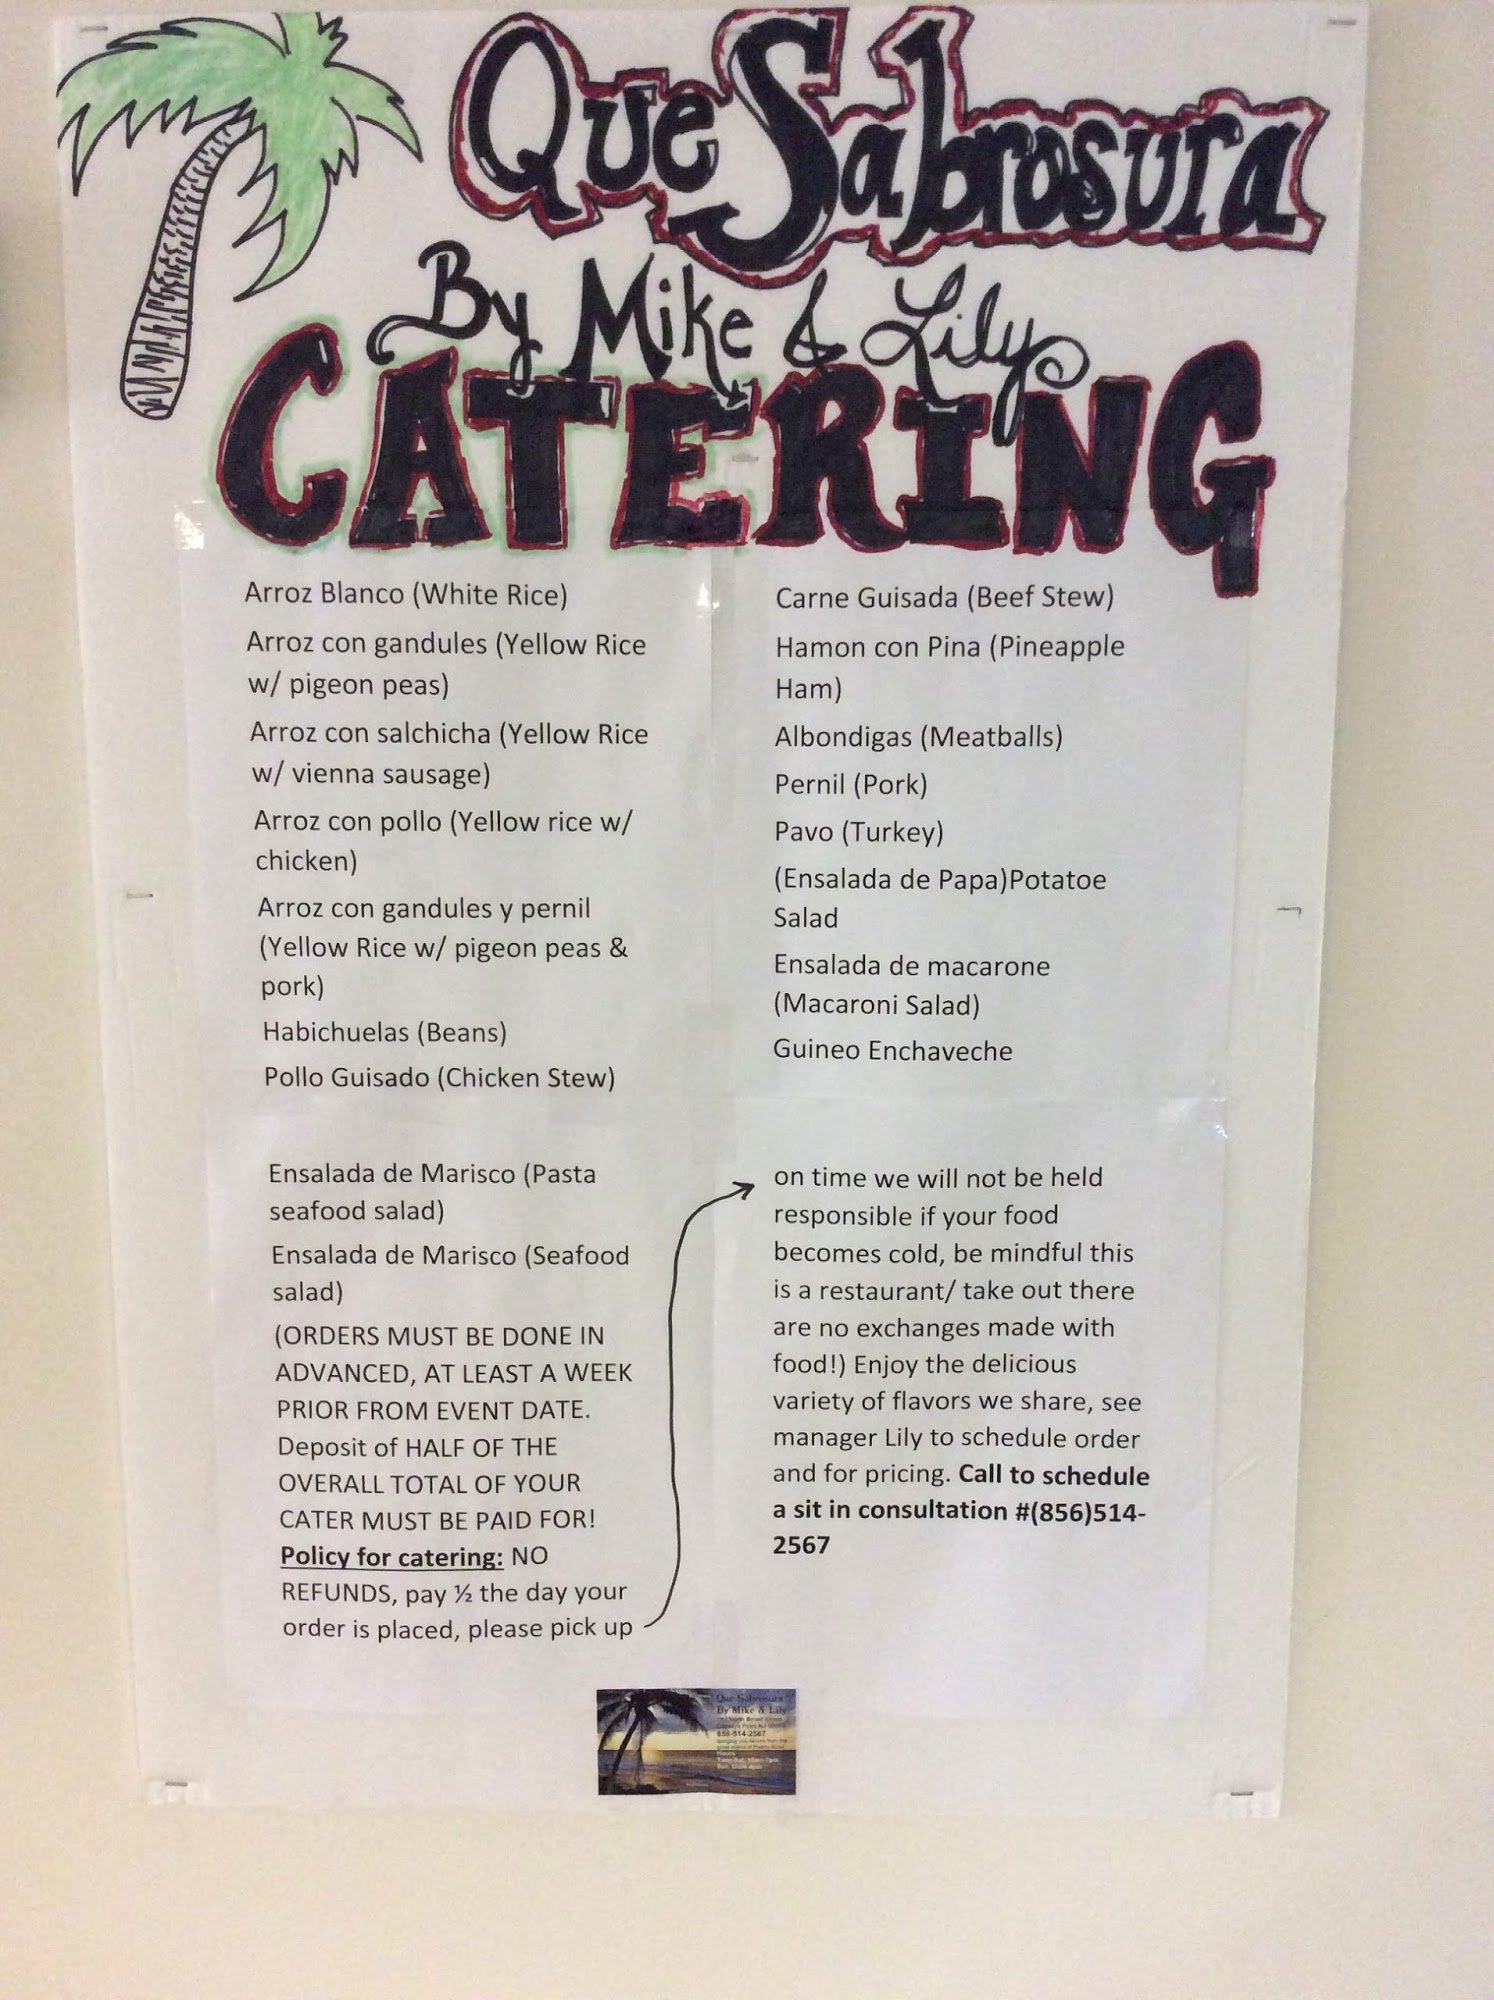 Que Sabrosura
By Mike & Lily
CATERING
Arroz Blanco (White Rice)
Arroz con gandules (Yellow Rice
w/ pigeon peas)
Arroz con salchicha (Yellow Rice
w/ vienna sausage)
Arroz con pollo (Yellow rice w/
chicken)
Arroz con gandules y pernil
(Yellow Rice w/ pigeon peas &
pork)
Habichuelas (Beans)
Pollo Guisado (Chicken Stew)
Carne Guisada (Beef Stew)
Hamon con Pina (Pineapple
Ham)
Albondigas (Meatballs)
Pernil (Pork)
Pavo (Turkey)
(Ensalada de Papa)Potatoe
Salad
Ensalada de macarone
(Macaroni Salad)
Guineo Enchaveche
Ensalada de Marisco (Pasta
seafood salad)
Ensalada de Marisco (Seafood
salad)
(ORDERS MUST BE DONE IN
ADVANCED, AT LEAST A WEEK
PRIOR FROM EVENT DATE.
Deposit of HALF OF THE
OVERALL TOTAL OF YOUR
CATER MUST BE PAID FOR!
Policy for catering: NO
REFUNDS, pay ½ the day your
order is placed, please pick up
on time we will not be held
responsible if your food
becomes cold, be mindful this
is a restaurant/ take out there
are no exchanges made with
food!) Enjoy the delicious
variety of flavors we share, see
manager Lily to schedule order
and for pricing. Call to schedule
a sit in consultation #(856)514-
2567
Que Sabrosura
By Mike & Lily
856-514-2567